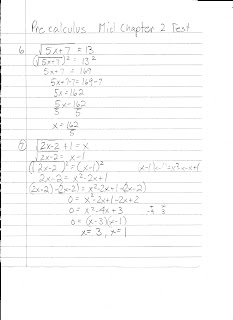 Pre calculus Mid Chapter 2 Test
6. √5x+7 = 13
(√5x+7)² = 13²
5x+7 = 169
5x+7-7=169-7
5x=162
5x=162
5 5
x=162
5
9) √2x-2 +1=x
√2x-2= x-1
(√2x-2)²=(x-1)² (x-1)(x-1)=x²-x-x+1
2x-2= x²-2x+1
(2x-2)-(2x-2)=x²-2x+1-(2x-2)
0= x²-2x+1-2x+2
0= x²-4x+3
0= (x-3)(x-1)
x=3, x=1